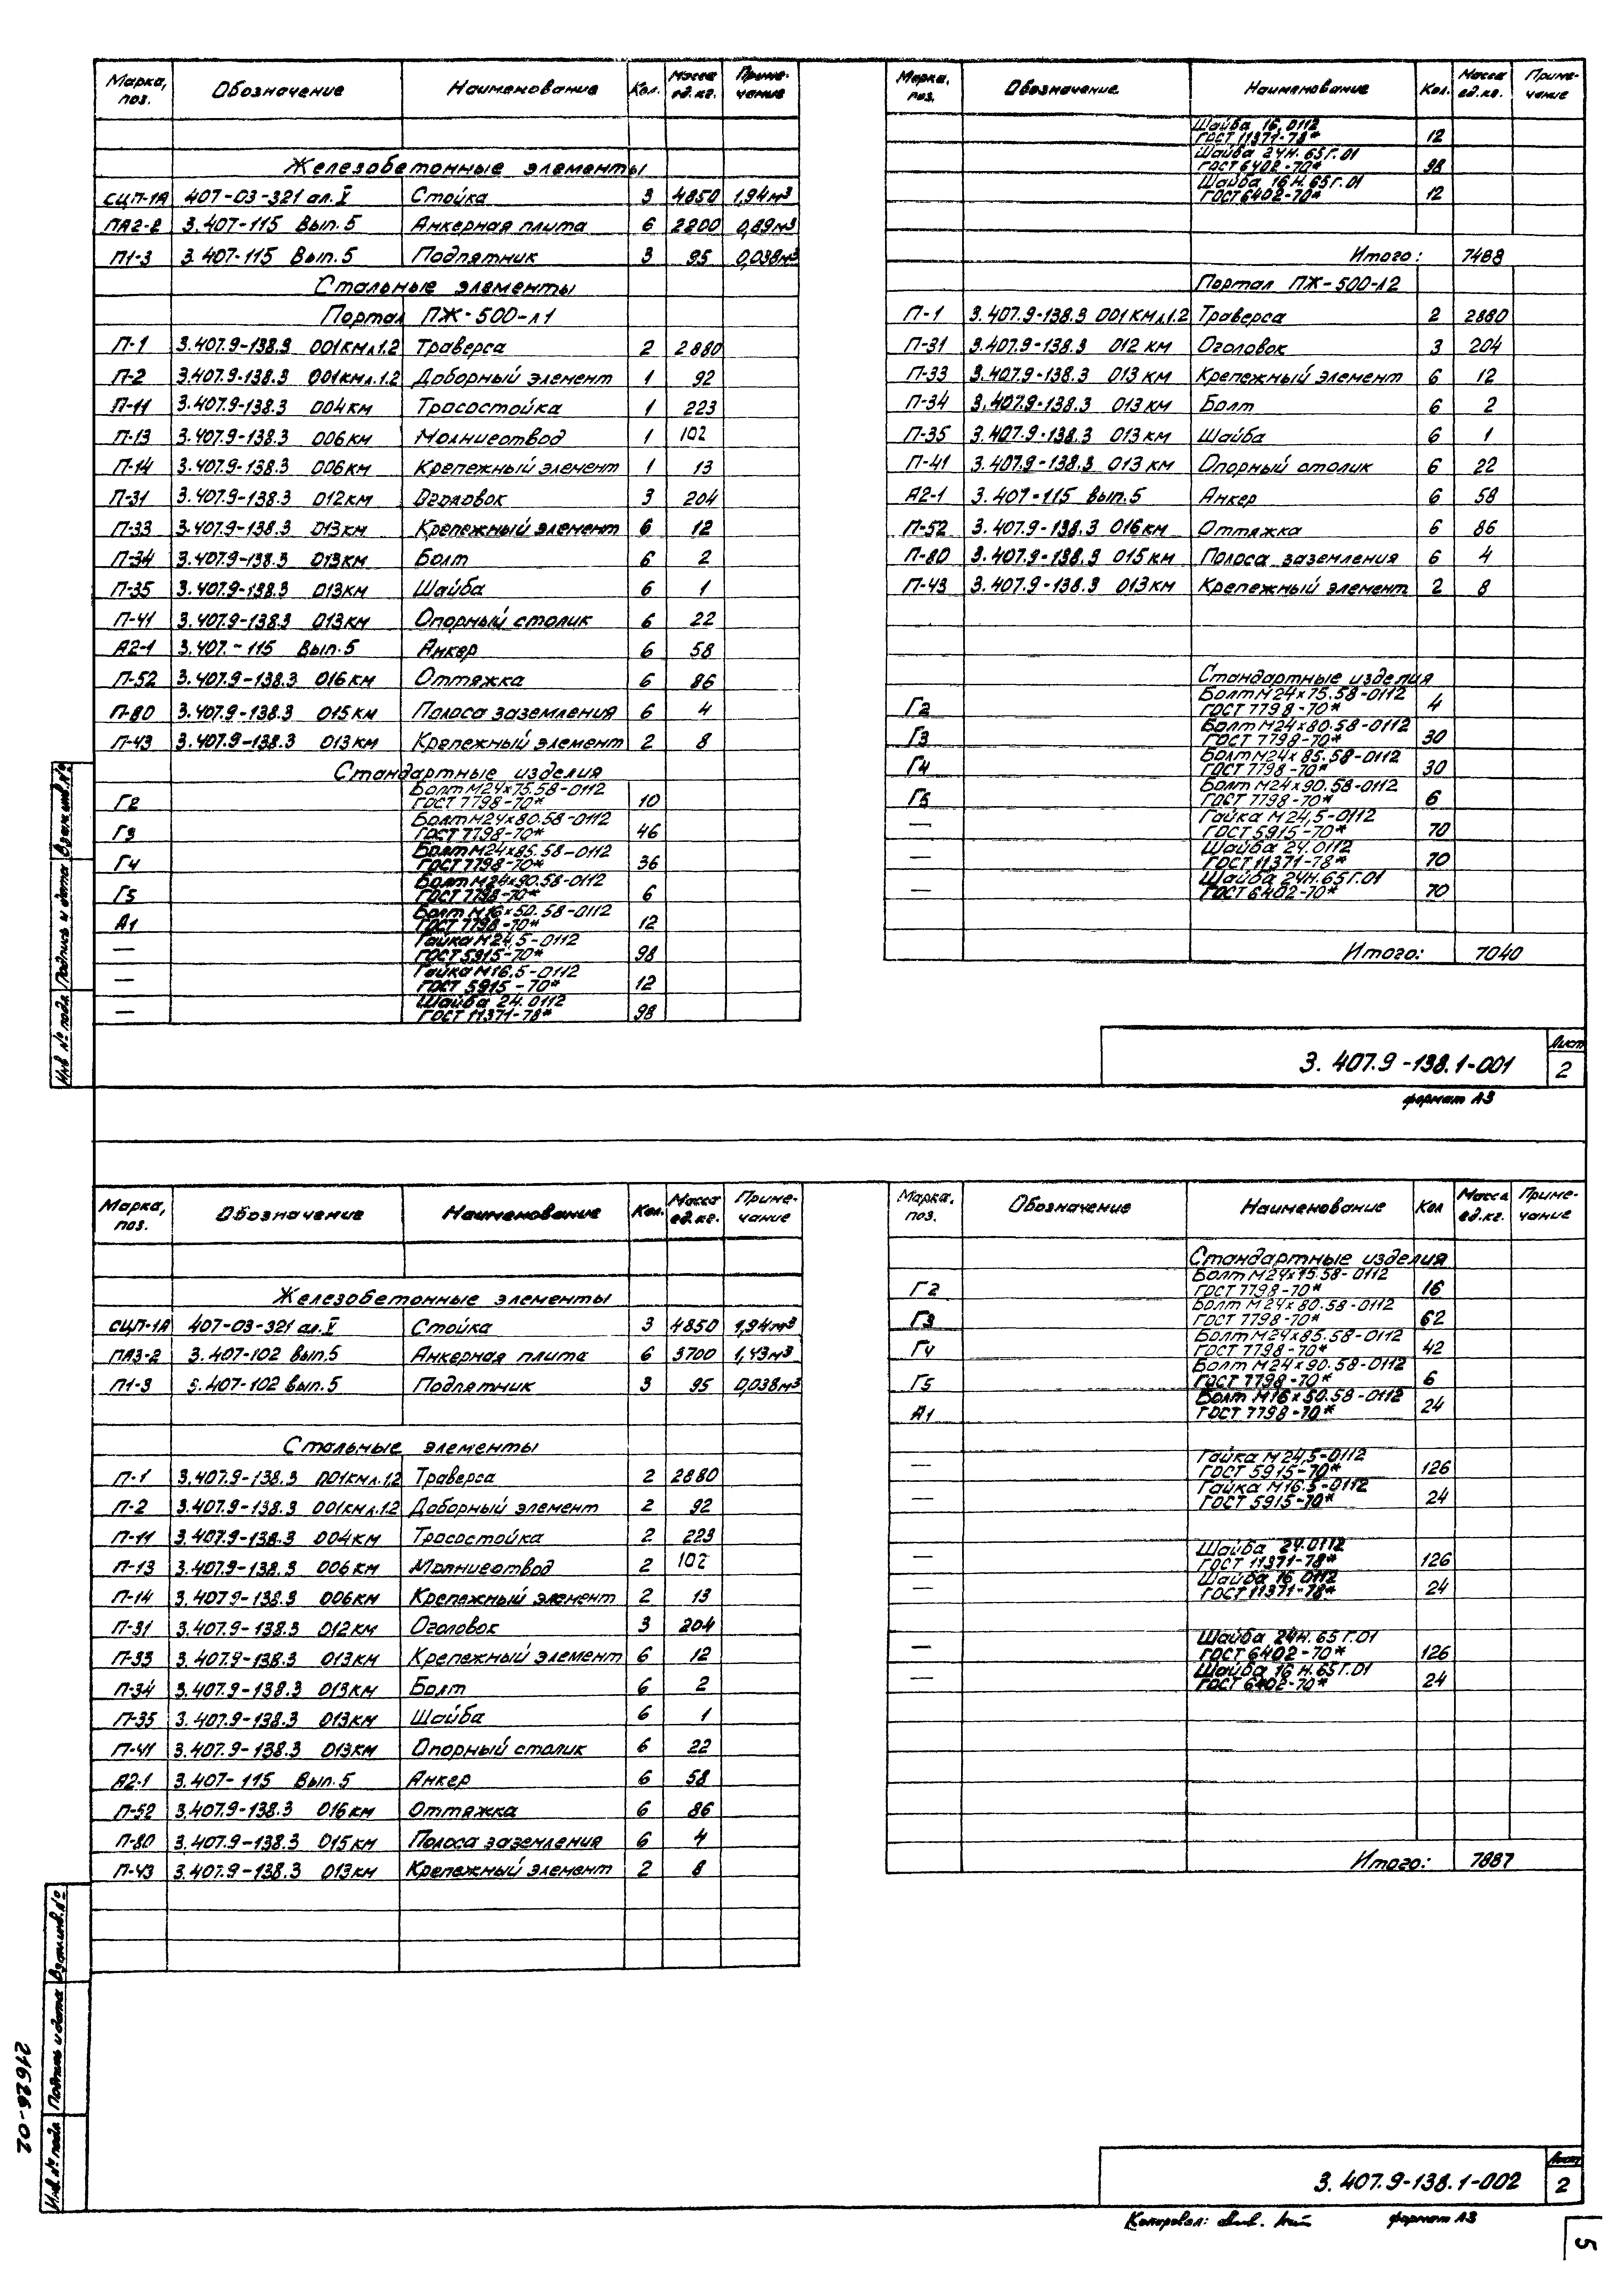 Марка, поз. Обозначение Наименование Кол. Масса ед.кг. Приме-чание
Железобетонные элементы
СЦП-1А 407-03-321 ал. V Стойка 3 4850 1,94м³
ПА2-2 3.407-115 Вып.5 Анкерная плита 6 2200 0,89м³
П1-3 3.407-115 Вып.5 Подпятник 3 95 0,038м³
Стальные элементы
Портал ПЖ-500-л1
П-1 3.407.9-138.3 001КМл.1.2 Траверса 2 2880
П-2 3.407.9-138.3 001КМл.1.2 Доборный элемент 1 92
П-11 3.407.9-138.3 004КМ Тросостойка 1 223
П-13 3.407.9-138.3 006КМ Молниеотвод 1 102
П-14 3.407.9-138.3 006КМ Крепежный элемент 1 13
П-31 3.407.9-138.3 012КМ Оголовок 3 204
П-33 3.407.9-138.3 013КМ Крепежный элемент 6 12
П-34 3.407.9-138.3 013КМ Болт 6 2
П-35 3.407.9-138.3 013КМ Шайба 6 1
П-41 3.407.9-138.3 013КМ Опорный столик 6 22
А2-1 3.407.-115 Вып.5 Анкер 6 58
П-52 3.407.9-138.3 016КМ Оттяжка 6 86
П-80 3.407.9-138.3 015КМ Полоса заземления 6 4
П-43 3.407.9-138.3 013КМ Крепежный элемент 2 8
Стандартные изделия
Г2 Болт М24х75.58-0112 ГОСТ 7798-70* 10
Г3 Болт М24х80.58-0112 ГОСТ 7798-70* 46
Г4 Болт М24х85.58-0112 ГОСТ 7798-70* 36
Г5 Болт М24х90.58-0112 ГОСТ 7798-70* 6
А1 Болт М16х50.58-0112 ГОСТ 7798-70* 12
— Гайка М24,5-0112 ГОСТ 5915-70* 98
— Гайка М16.5-0112 ГОСТ 5915-70* 12
— Шайба 24.0112 ГОСТ 11371-78* 98
Марка, поз. Обозначение Наименование Кол. Масса ед.кг. Приме-чание
Шайба 16.0112 ГОСТ 11371-78* 12
Шайба 24Н.65Г.01 ГОСТ 6402-70* 98
Шайба 16Н.65Г.01 ГОСТ 6402-70* 12
Итого: 7488
Портал ПЖ-500-л2
П-1 3.407.9-138.3 001КМл.1.2 Траверса 2 2880
П-31 3.407.9-138.3 012КМ Оголовок 3 204
П-33 3.407.9-138.3 013КМ Крепежный элемент 6 12
П-34 3.407.9-138.3 013КМ Болт 6 2
П-35 3.407.9-138.3 013КМ Шайба 6 1
П-41 3.407.9-138.3 013КМ Опорный столик 6 22
А2-1 3.407-115 Вып.5 Анкер 6 58
П-52 3.407.9-138.3 016КМ Оттяжка 6 86
П-80 3.407.9-138.3 015КМ Полоса заземления 6 4
П-43 3.407.9-138.3 013КМ Крепежный элемент 2 8
Стандартные изделия
Г2 Болт М24х75.58-0112 ГОСТ 7798-70* 4
Г3 Болт М24х80.58-0112 ГОСТ 7798-70* 30
Г4 Болт М24х85.58-0112 ГОСТ 7798-70* 30
Г5 Болт М24х90.58-0112 ГОСТ 7798-70* 6
— Гайка М24,5-0112 ГОСТ 5915-70* 70
— Шайба 24.0112 ГОСТ 11371-78* 70
— Шайба 24Н.65Г.01 ГОСТ 6402-70* 70
Итого: 7040
3.407.9-138.1-001
Лист 2
формат А3
Инв № подл. Подпись и дата Взам.инв.№
Марка, поз. Обозначение Наименование Кол. Масса ед.кг. Приме-чание
Железобетонные элементы
СЦП-1А 407-03-321 ал. V Стойка 3 4850 1,94м³
ПА3-2 3.407-102 Вып.5 Анкерная плита 6 3700 1,43м³
П1-3 3.407-102 Вып.5 Подпятник 3 95 0,038м³
Стальные элементы
П-1 3.407.9-138.3 001КМл.1.2 Траверса 2 2880
П-2 3.407.9-138.3 001КМл.1.2 Доборный элемент 2 92
П-11 3.407.9-138.3 004КМ Тросостойка 2 223
П-13 3.407.9-138.3 006КМ Молниеотвод 2 102
П-14 3.407.9-138.3 006КМ Крепежный элемент 2 13
П-31 3.407.9-138.3 012КМ Оголовок 3 204
П-33 3.407.9-138.3 013КМ Крепежный элемент 6 12
П-34 3.407.9-138.3 013КМ Болт 6 2
П-35 3.407.9-138.3 013КМ Шайба 6 1
П-41 3.407.9-138.3 013КМ Опорный столик 6 22
А2-1 3.407-115 Вып.5 Анкер 6 58
П-52 3.407.9-138.3 016КМ Оттяжка 6 86
П-80 3.407.9-138.3 015КМ Полоса заземления 6 4
П-43 3.407.9-138.3 013КМ Крепежный элемент 2 8
Марка, поз. Обозначение Наименование Кол Масса ед.кг. Приме-чание
Стандартные изделия
Г2 Болт М24х75.58-0112 ГОСТ 7798-70* 16
Г3 Болт М24х80.58-0112 ГОСТ 7798-70* 62
Г4 Болт М24х85.58-0112 ГОСТ 7798-70* 42
Г5 Болт М24х90.58-0112 ГОСТ 7798-70* 6
А1 Болт М16х50.58-0112 ГОСТ 7798-70* 24
— Гайка М24,5-0112 ГОСТ 5915-70* 126
— Гайка М16.5-0112 ГОСТ 5915-70* 24
— Шайба 24.0112 ГОСТ 11371-78* 126
— Шайба 16.0112 ГОСТ 11371-78* 24
— Шайба 24Н.65Г.01 ГОСТ 6402-70* 126
— Шайба 16Н.65Г.01 ГОСТ 6402-70* 24
Итого: 7887
3.407.9-138.1-002
Лист 2
Инв. № подл. Подпись и дата Взам.инв.№
21626-02
Копировал:
формат А3
5